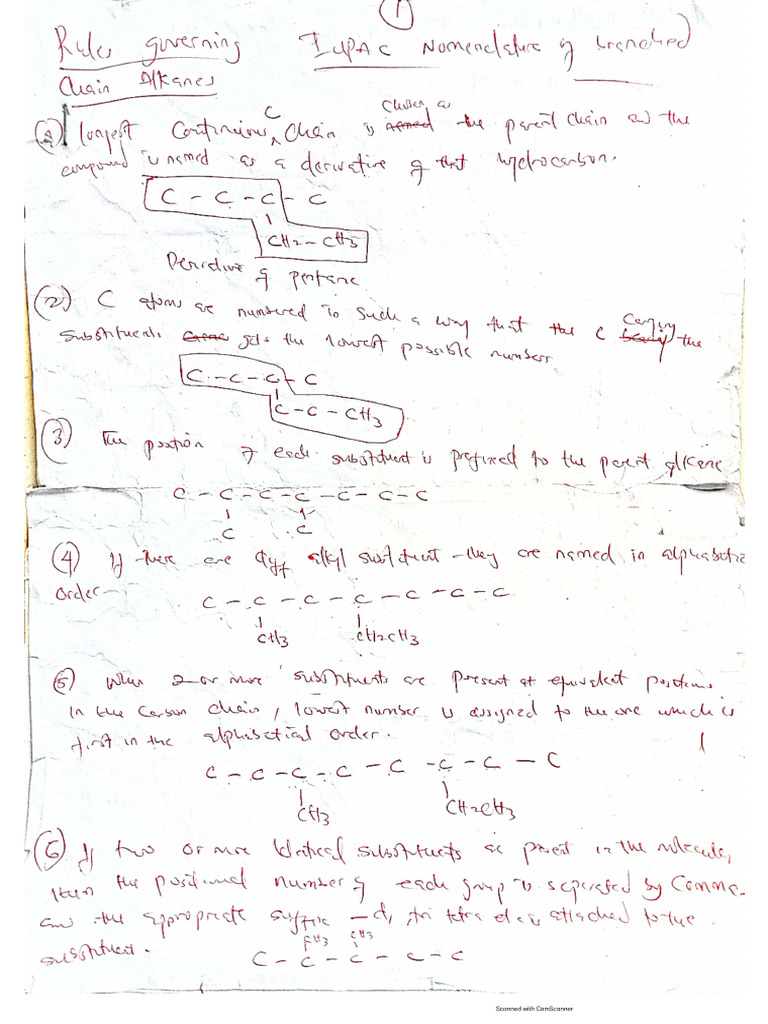 1
Rules governing IUPAC Nomenclature of branched
Chain Alkanes
(1) longest Continuous C Chain is chosen as the parent chain and the
compound is named as a derivative of that hydrocarbon.
C - C - C - C
CH2 - CH3
Derivative of pentane
(2) C atoms are numbered in such a way that the C carrying the
substituents gets the lowest possible numbers
C - C - C - C
C - C - CH3
(3) The position of each substituent is prefixed to the parent alkane
C - C - C - C - C - C - C
C C
(4) If there are diff alkyl substituent they are named in alphabetic
order
C - C - C - C - C - C - C
CH3 CH2CH3
(5) When 2 or more substituents are present at equivalent positions
in the carbon chain, lowest number is assigned to the one which is
first in the alphabetical order.
C - C - C - C - C - C - C - C
CH3 CH2CH3
(6) If two or more identical substituents are present in the molecule,
then the positional number of each group is separated by comma
and the appropriate suffix - di, tri tetra etc is attached to the
substituent.
CH3 CH3
C - C - C - C - C
Scanned with CamScanner